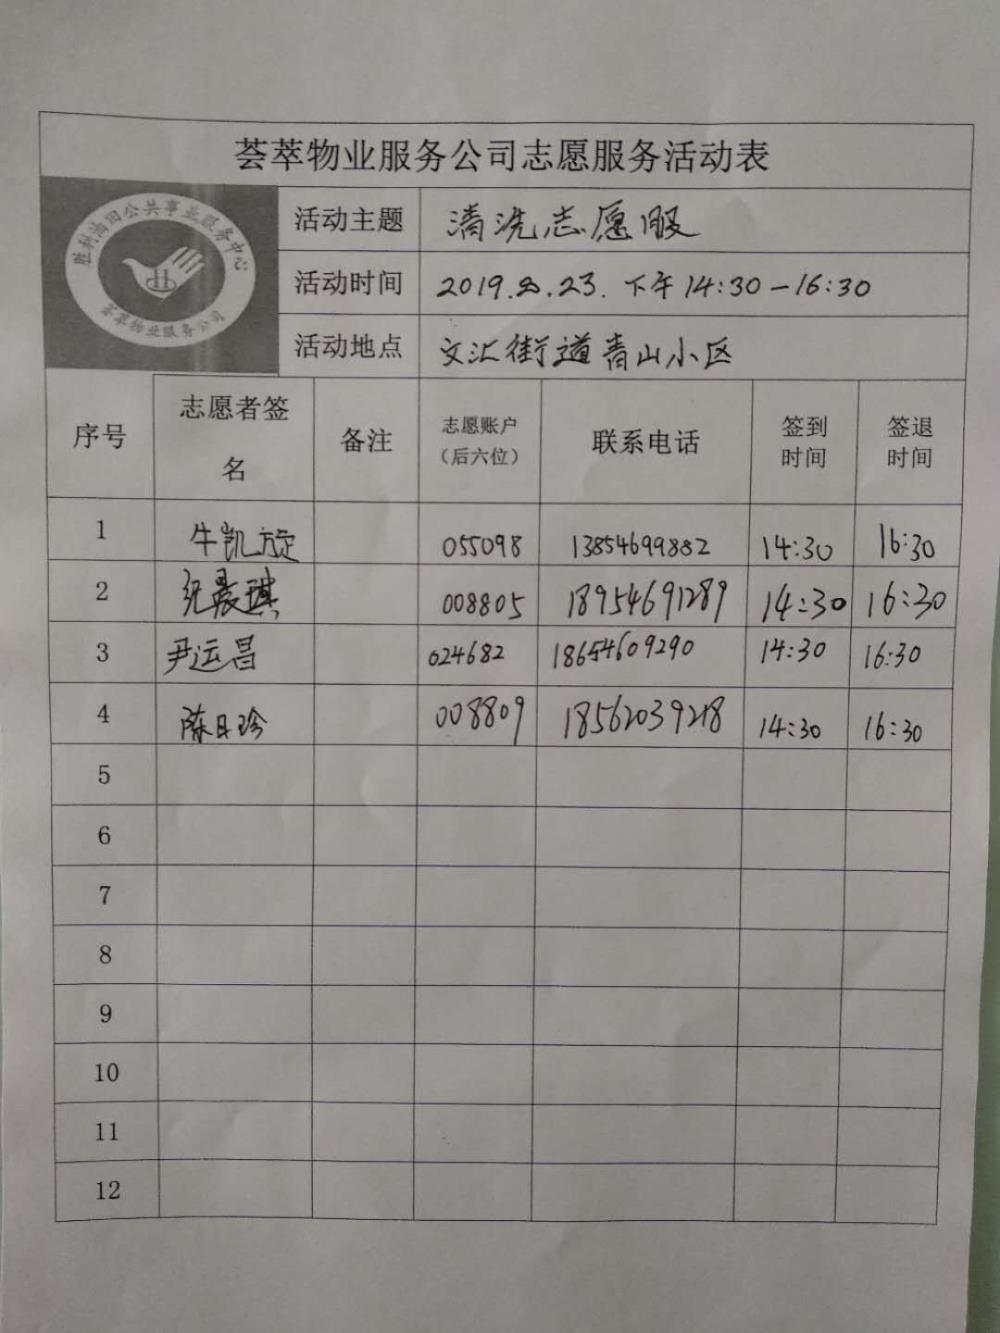 荟萃物业服务公司志愿服务活动表
胜利油田公共事业服务中心
荟萃物业服务公司
活动主题 清洗志愿服
活动时间 2019.8.23. 下午14:30-16:30
活动地点 文汇街道青山小区
序号 志愿者签名 备注 志愿账户（后六位） 联系电话 签到时间 签退时间
1 牛凯旋 055098 13854699882 14:30 16:30
2 纪晨琪 008805 18954691289 14:30 16:30
3 尹运昌 024682 18654609290 14:30 16:30
4 陈日珍 008809 18562039218 14:30 16:30
5
6
7
8
9
10
11
12